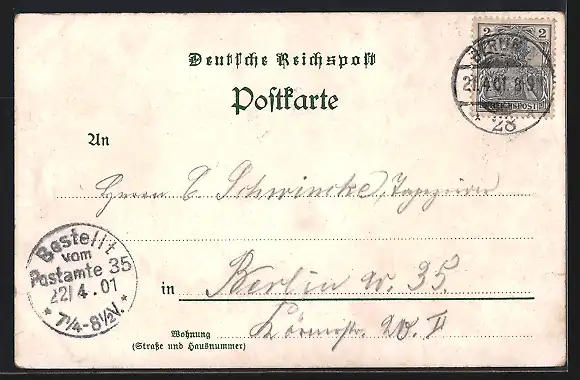 Deutsche Reichspost
Postkarte
2 2
REICHSPOST
BERLIN
21.4.01. 8-9
28
An
Herrn C Schwincke, Tapezierer
Bestellt
vom
Postamte 35
22/4.01
7¼-8½V.
in Berlin W. 35.
Wohnung
(Straße und Hausnummer)
Körnerstr. 20. II